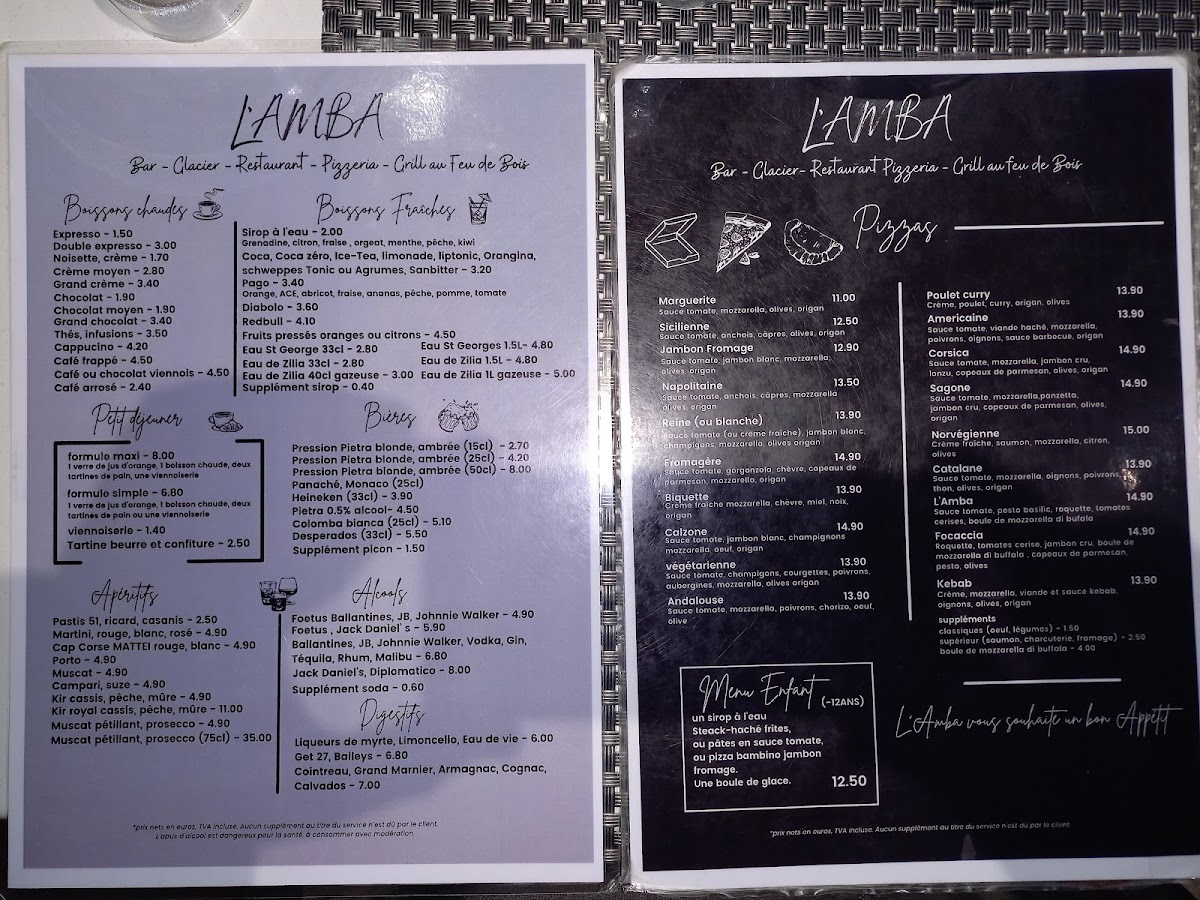 L'AMBA
Bar - Glacier - Restaurant - Pizzeria - Grill au Feu de Bois
Boissons chaudes
Expresso - 1.50
Double expresso - 3.00
Noisette, crème - 1.70
Crème moyen - 2.80
Grand crème - 3.40
Chocolat - 1.90
Chocolat moyen - 1.90
Grand chocolat - 3.40
Thés, infusions - 3.50
Cappucino - 4.20
Café frappé - 4.50
Café ou chocolat viennois - 4.50
Café arrosé - 2.40
Boissons Fraîches
Sirop à l'eau - 2.00
Grenadine, citron, fraise, orgeat, menthe, pêche, kiwi
Coca, Coca zéro, Ice-Tea, limonade, liptonic, Orangina,
schweppes Tonic ou Agrumes, Sanbitter - 3.20
Pago - 3.40
Orange, ACE, abricot, fraise, ananas, pêche, pomme, tomate
Diabolo - 3.60
Redbull - 4.10
Fruits pressés oranges ou citrons - 4.50
Eau St George 33cl - 2.80 Eau St Georges 1.5L- 4.80
Eau de Zilia 33cl - 2.80 Eau de Zilia 1.5L - 4.80
Eau de Zilia 40cl gazeuse - 3.00 Eau de Zilia 1L gazeuse - 5.00
Supplément sirop - 0.40
Petit déjeuner
formule maxi - 8.00
1 verre de jus d'orange, 1 boisson chaude, deux
tartines de pain, une viennoiserie
formule simple - 6.80
1 verre de jus d'orange, 1 boisson chaude, deux
tartines de pain ou une viennoiserie
viennoiserie - 1.40
Tartine beurre et confiture - 2.50
Bières
Pression Pietra blonde, ambrée (15cl) - 2.70
Pression Pietra blonde, ambrée (25cl) - 4.20
Pression Pietra blonde, ambrée (50cl) - 8.00
Panaché, Monaco (25cl)
Heineken (33cl) - 3.90
Pietra 0.5% alcool- 4.50
Colomba bianca (25cl) - 5.10
Desperados (33cl) - 5.50
Supplément picon - 1.50
Apéritifs
Pastis 51, ricard, casanis - 2.50
Martini, rouge, blanc, rosé - 4.90
Cap Corse MATTEI rouge, blanc - 4.90
Porto - 4.90
Muscat - 4.90
Campari, suze - 4.90
Kir cassis, pêche, mûre - 4.90
Kir royal cassis, pêche, mûre - 11.00
Muscat pétillant, prosecco - 4.90
Muscat pétillant, prosecco (75cl) - 35.00
Alcools
Foetus Ballantines, JB, Johnnie Walker - 4.90
Foetus , Jack Daniel' s - 5.90
Ballantines, JB, Johnnie Walker, Vodka, Gin,
Téquila, Rhum, Malibu - 6.80
Jack Daniel's, Diplomatico - 8.00
Supplément soda - 0.60
Digestifs
Liqueurs de myrte, Limoncello, Eau de vie - 6.00
Get 27, Baileys - 6.80
Cointreau, Grand Marnier, Armagnac, Cognac,
Calvados - 7.00
*prix nets en euros, TVA incluse. Aucun supplément au titre du service n'est dû par le client.
L'abus d'alcool est dangereux pour la santé, à consommer avec modération.
L'AMBA
Bar - Glacier- Restaurant Pizzeria - Grill au feu de Bois
Pizzas
Marguerite 11.00
Sauce tomate, mozzarella, olives, origan
Sicilienne 12.50
Sauce tomate, anchois, câpres, olives, origan
Jambon Fromage 12.90
Sauce tomate, jambon blanc, mozzarella,
olives, origan
Napolitaine 13.50
Sauce tomate, anchois, câpres, mozzarella
olives, origan
Reine (ou blanche) 13.90
Sauce tomate (ou crème fraîche), jambon blanc,
champigons, mozzarella, olives origan
Fromagère 14.90
Sauce tomate, gorgonzola, chèvre, copeaux de
parmesan, mozzarella, origan
Biquette 13.90
Crème fraîche mozzarella, chèvre, miel, noix,
origan
Calzone 14.90
Sauce tomate, jambon blanc, champignons
mozzarella, oeuf, origan
végétarienne 13.90
Sauce tomate, champigons, courgettes, poivrons,
aubergines, mozzarella, olives origan
Andalouse 13.90
Sauce tomate, mozzarella, poivrons, chorizo, oeuf,
olive
Poulet curry 13.90
Crème, poulet, curry, origan, olives
Americaine 13.90
Sauce tomate, viande haché, mozzarella,
poivrons, oignons, sauce barbecue, origan
Corsica 14.90
Sauce tomate, mozzarella, jambon cru,
lonzu, copeaux de parmesan, olives, origan
Sagone 14.90
Sauce tomate, mozzarella,panzetta,
jambon cru, copeaux de parmesan, olives,
origan
Norvégienne 15.00
Crème fraîche, saumon, mozzarella, citron,
olives
Catalane 13.90
Sauce tomate, mozzarella, oignons, poivrons,
thon, olives, origan
L'Amba 14.90
Sauce tomate, pesto basilic, roquette, tomates
cerises, boule de mozzarella di bufala
Focaccia 14.90
Roquette, tomates cerise, jambon cru, boule de
mozzarella di buffala , copeaux de parmesan,
pesto, olives
Kebab 13.90
Crème, mozzarella, viande et sauce kebab,
oignons, olives, origan
suppléments
classiques (oeuf, légumes) - 1.50
supérieur (saumon, charcuterie, fromage) - 2.50
boule de mozzarella di buffala - 4.00
Menu Enfant (-12ANS)
un sirop à l'eau
Steack-haché frites,
ou pâtes en sauce tomate,
ou pizza bambino jambon
fromage.
Une boule de glace. 12.50
L'Amba vous souhaite un bon Appétit
*prix nets en euros, TVA incluse. Aucun supplément au titre du service n'est dû par le client